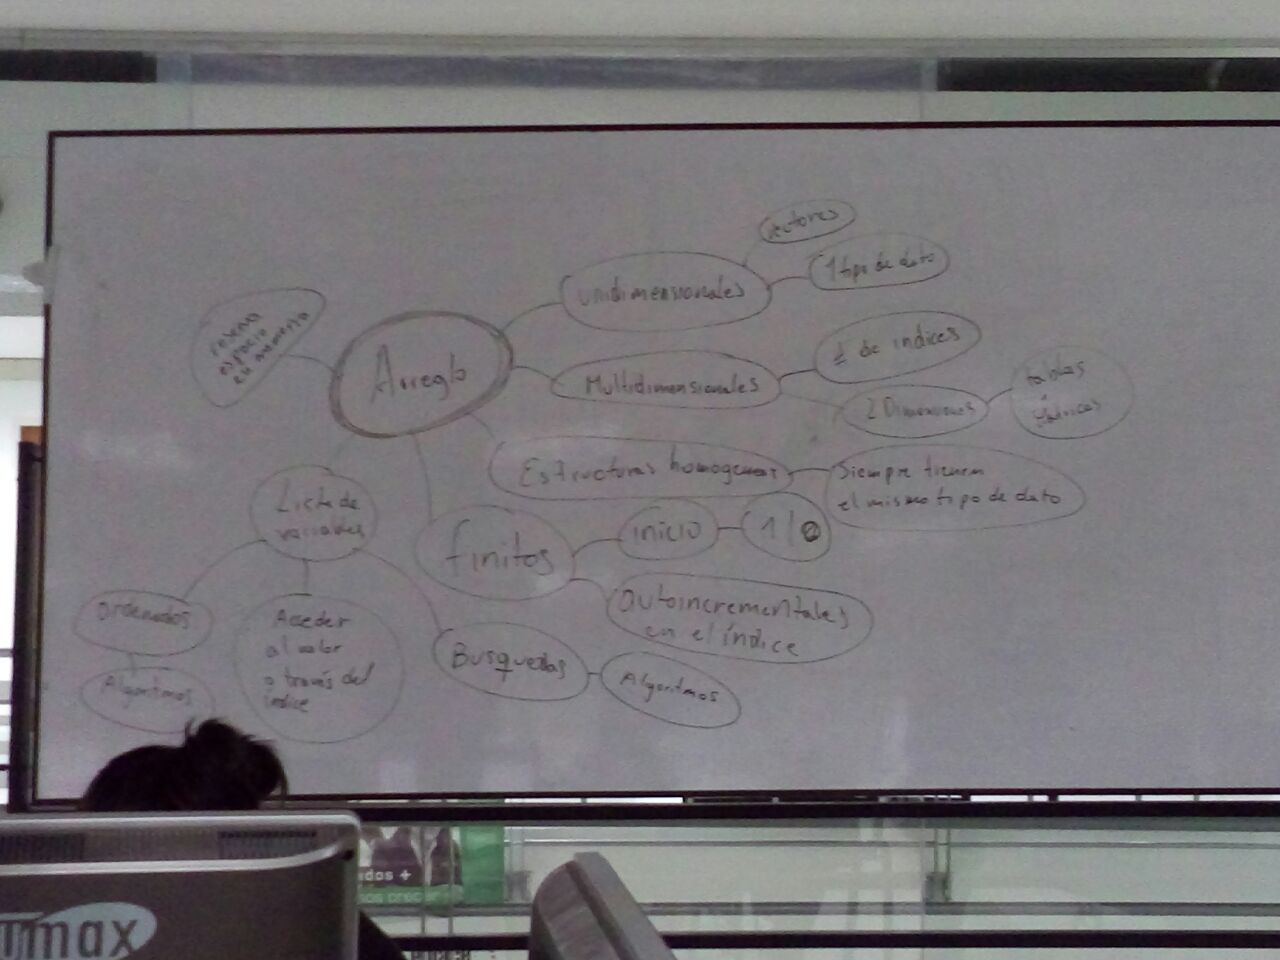 vectores
unidimensionales
1 tipo de dato
reserva
espacio
en memoria
Arreglo
Multidimensionales
# de indices
2 Dimensiones
tablas
Estructuras homogeneas
Siempre tienen
el mismo tipo de dato
Lista de
variables
finitos
inicio
1/0
autoincrementales
en el índice
Ordenados
Algoritmos
Acceder
al valor
a través del
índice
Busquedas
Algoritmos
dos +
max